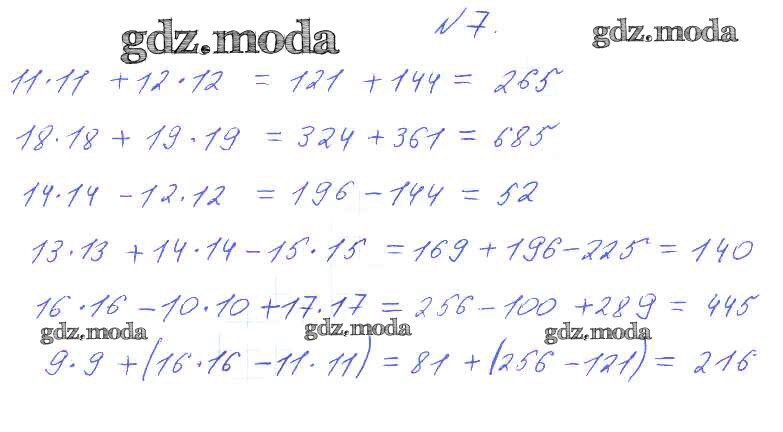 N7.
gdz.moda
gdz.moda
11·11 + 12·12 = 121 + 144 = 265
18·18 + 19·19 = 324 + 361 = 685
14·14 - 12·12 = 196 - 144 = 52
13·13 + 14·14 - 15·15 = 169 + 196 - 225 = 140
16·16 - 10·10 + 17·17 = 256 - 100 + 289 = 445
gdz.moda gdz.moda gdz.moda
9·9 + (16·16 - 11·11) = 81 + (256 - 121) = 216